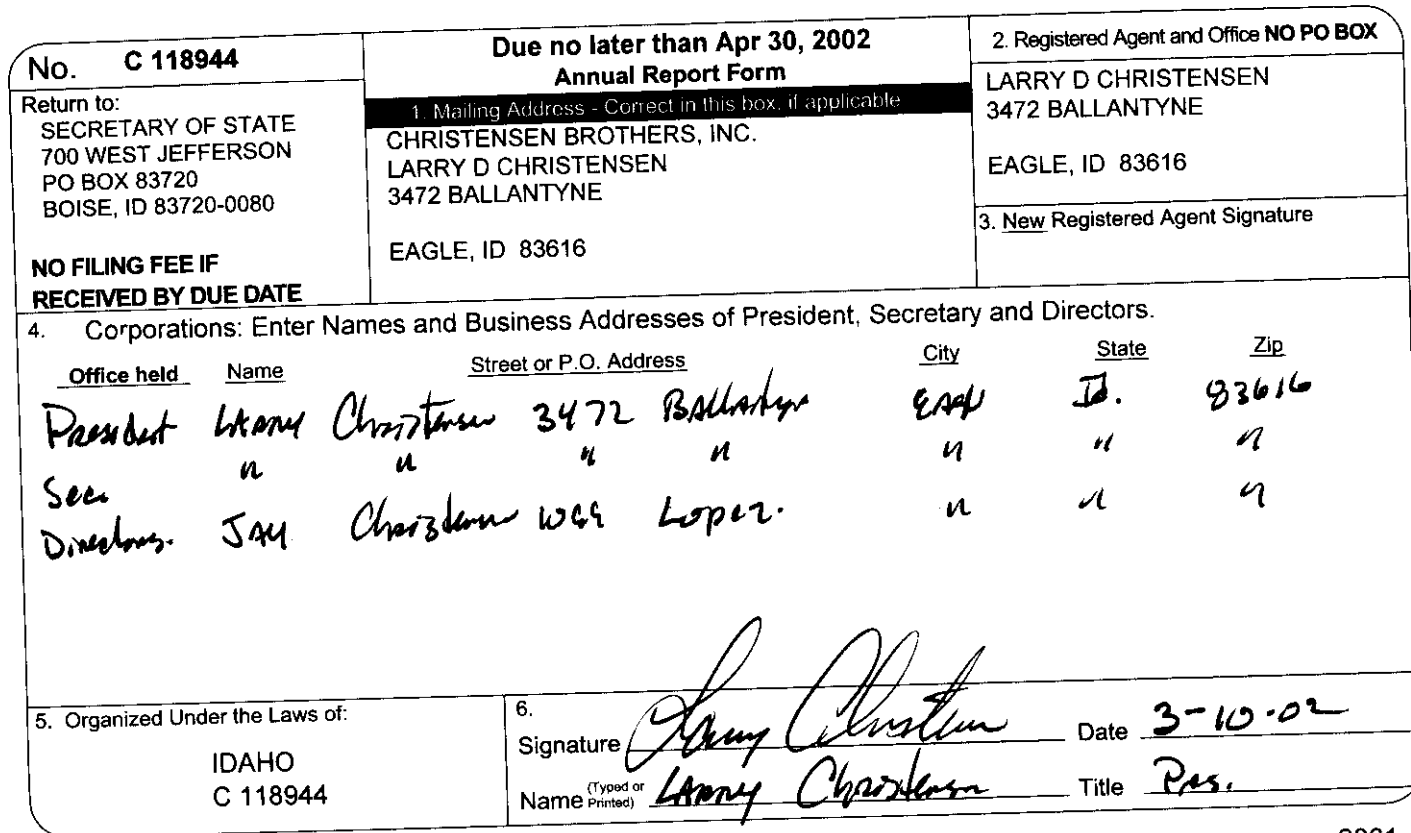 No. C 118944
Return to:
SECRETARY OF STATE
700 WEST JEFFERSON
PO BOX 83720
BOISE, ID 83720-0080
NO FILING FEE IF
RECEIVED BY DUE DATE
Due no later than Apr 30, 2002
Annual Report Form
1. Mailing Address - Correct in this box, if applicable
CHRISTENSEN BROTHERS, INC.
LARRY D CHRISTENSEN
3472 BALLANTYNE
EAGLE, ID 83616
2. Registered Agent and Office NO PO BOX
LARRY D CHRISTENSEN
3472 BALLANTYNE
EAGLE, ID 83616
3. New Registered Agent Signature
4. Corporations: Enter Names and Business Addresses of President, Secretary and Directors.
Office held Name Street or P.O. Address City State Zip
President LARRY Christensen 3472 Ballantyne EAGLE Id. 83616
Sec. " " " " " " "
Directors. JAY Christensen Lopez. " " "
5. Organized Under the Laws of:
IDAHO
C 118944
6.
Signature Larry Christensen Date 3-10-02
Name (Typed or Printed) LARRY Christensen Title Pres.